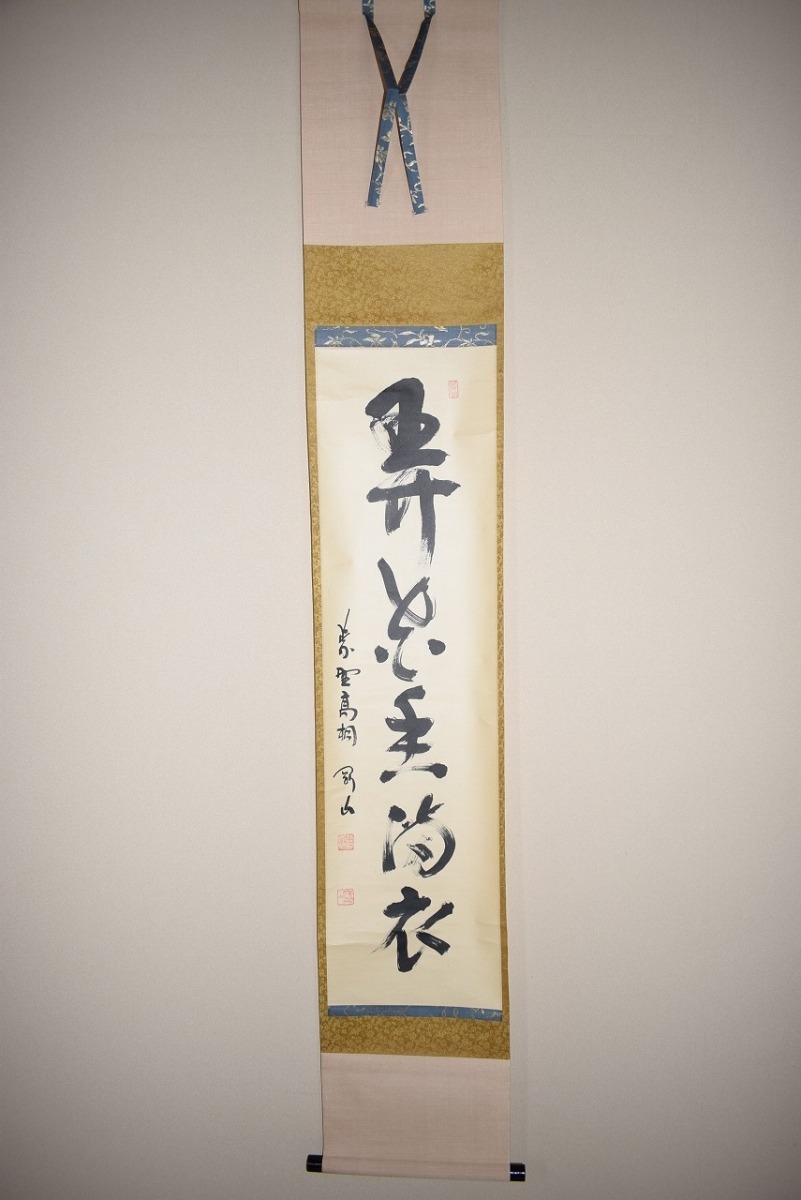 弄花香満衣
紫野高桐 剛山